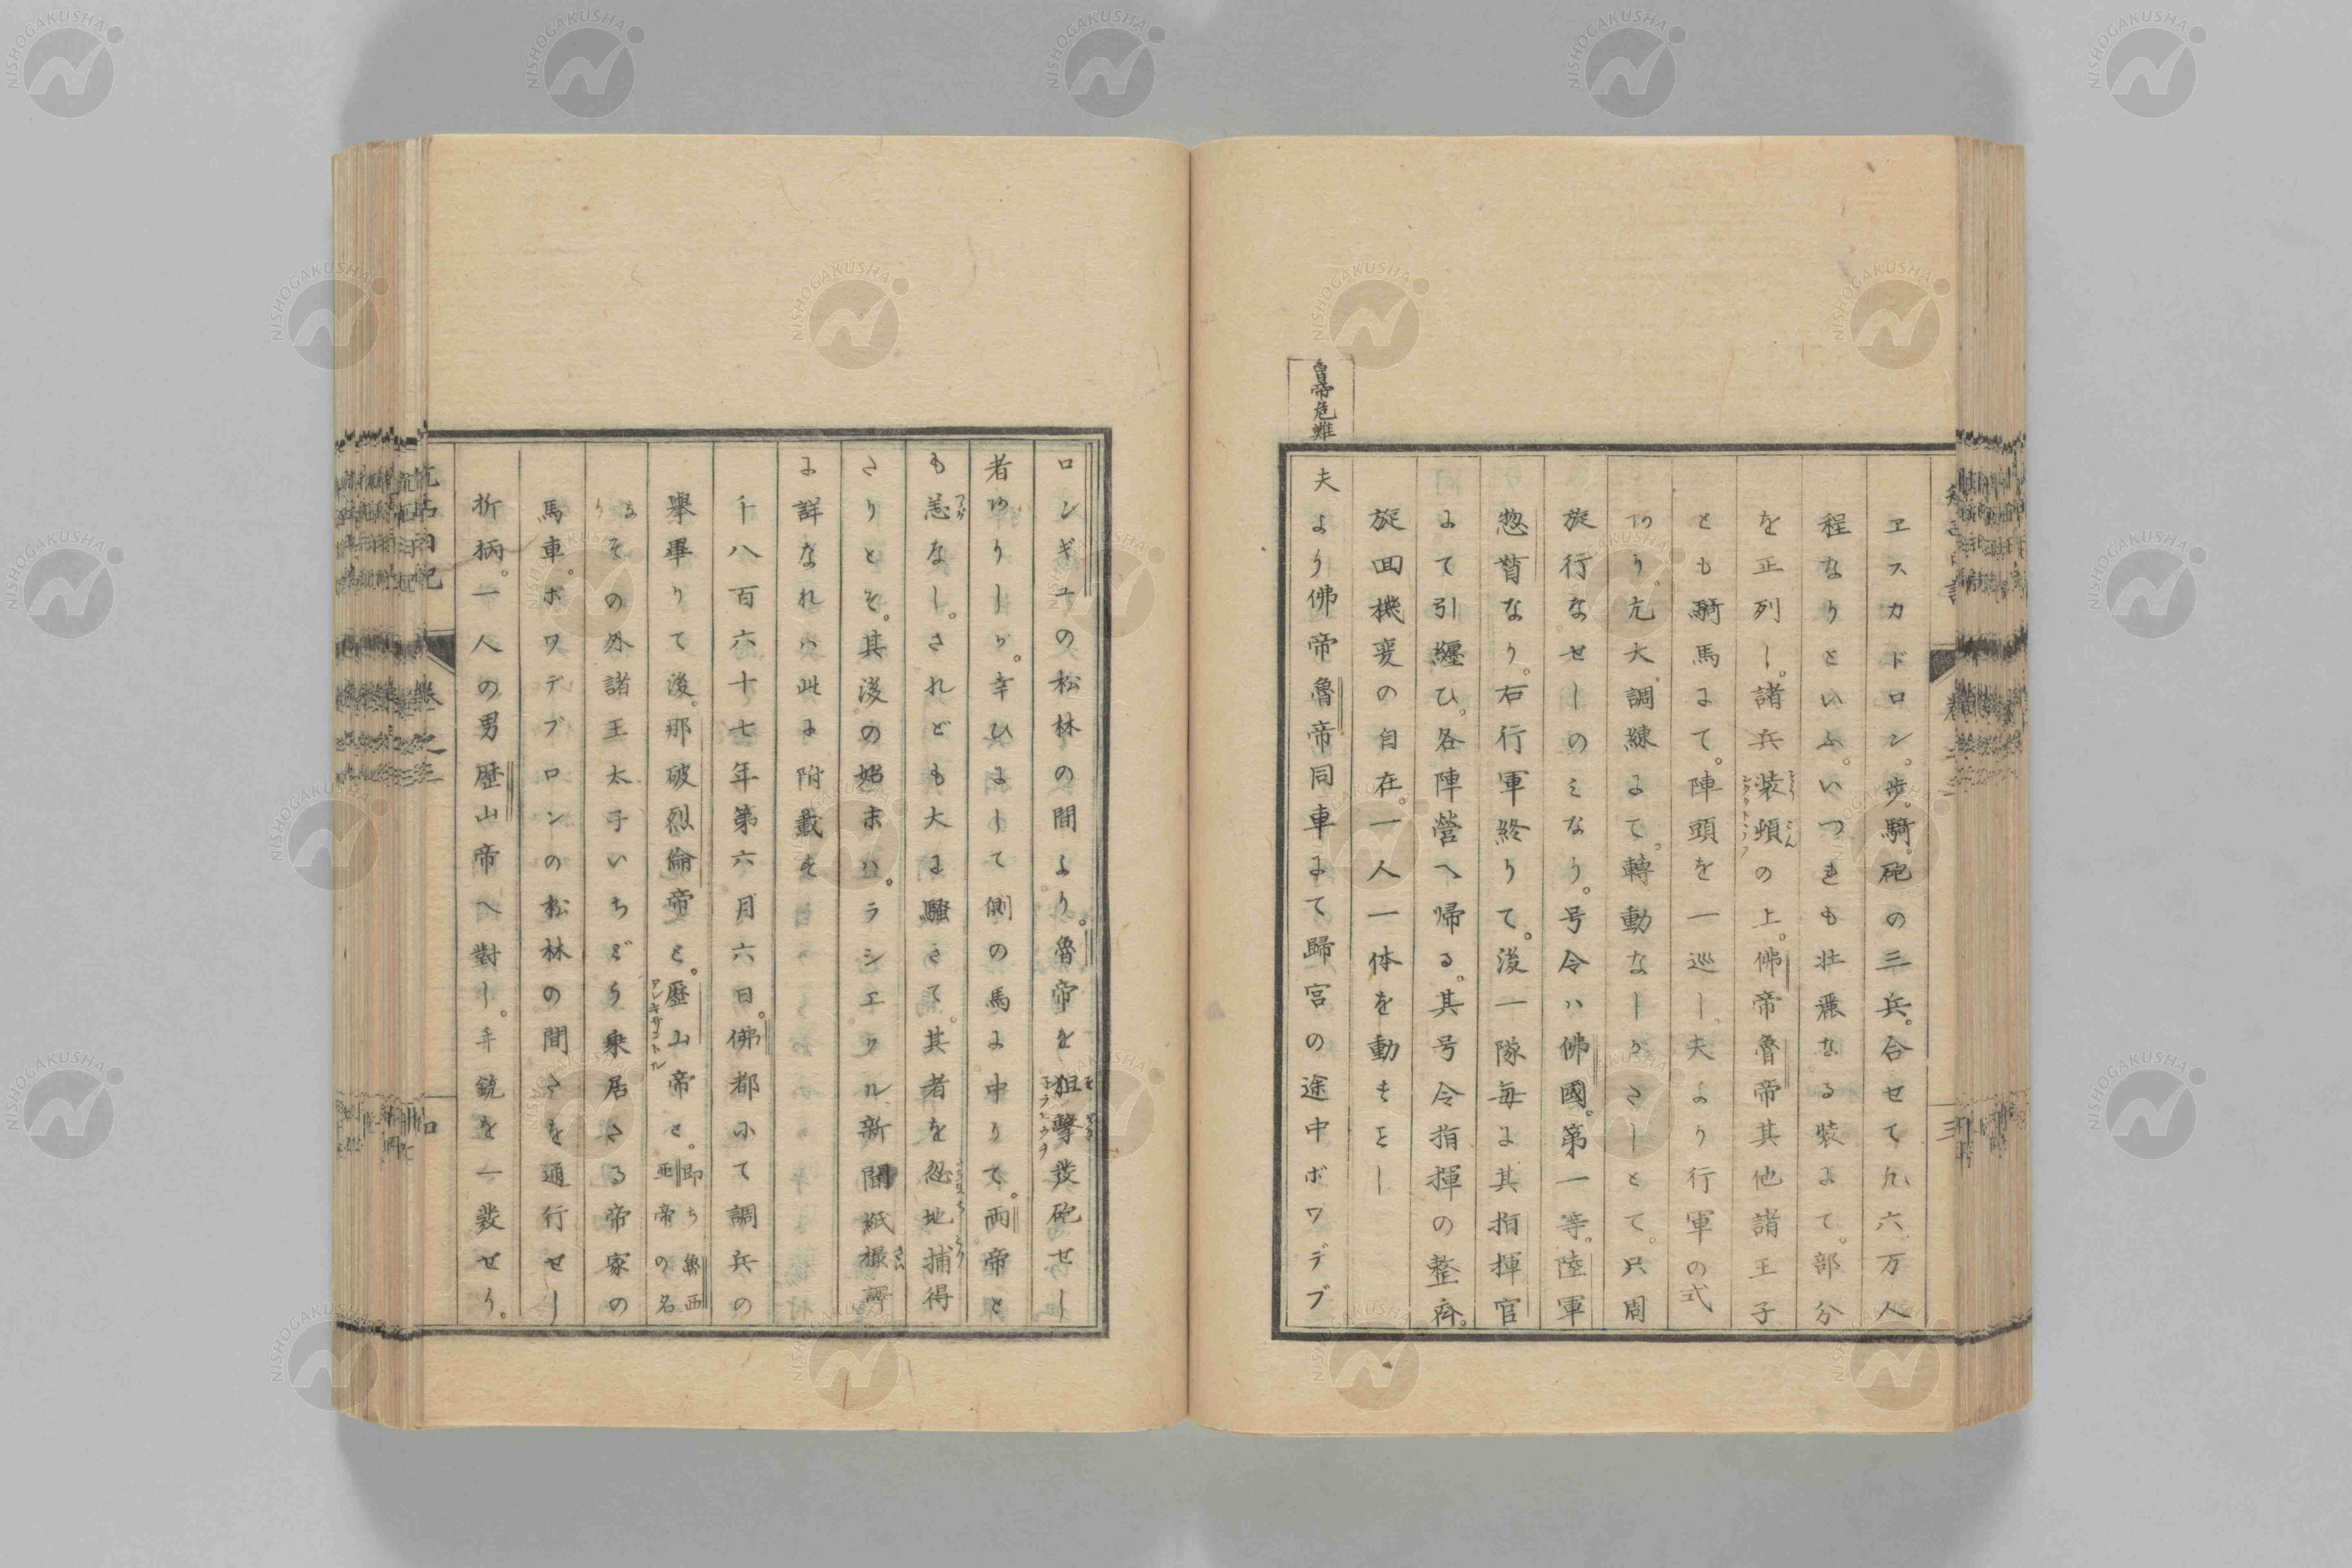 ヱスカドロン。歩。騎。砲の三兵。合せて凢六万人
程なりといふ。いつきも壮麗なる装よて。部分
を正列し。諸兵装頓の上。佛帝魯帝其他諸王子
とも騎馬よて。陣頭を一巡し。夫より行軍の式
あり。尤大調練よて。轉動なしがさしとて。只周
旋行なせしのミなり。号令ハ佛國。第一等。陸軍
惣督なり。右行軍終りて。後一隊毎よ其指揮官
よて引纏ひ。各陣營へ帰る。其号令指揮の整齊。
旋回機変の自在。一人一体を動すごとし
魯帝危難
夫より佛帝魯帝同車よて歸宮の途中ボワデブ
ロンギユの松林の間より。魯帝を狙擊發砲せし
者ありしが。幸ひよして側の馬よ中りて。両帝と
も恙なし。されども大よ騒きて。其者を忽地捕得
さりとぞ。其後の始末ハ。ラシエクル新聞紙撮譯
よ詳なれハ此よ附載す
千八百六十七年第六月六日。佛都小て調兵の
舉畢りて後。那破烈倫帝と。歴山帝と。即ち鄂西亜帝の名
なりその外諸王太子いちどう乗居さる帝家の
馬車。ボワデブロンの松林の間さを通行せし
折柄。一人の男歴山帝へ對し。手銃を一發せり。
NISHOGAKUSHA